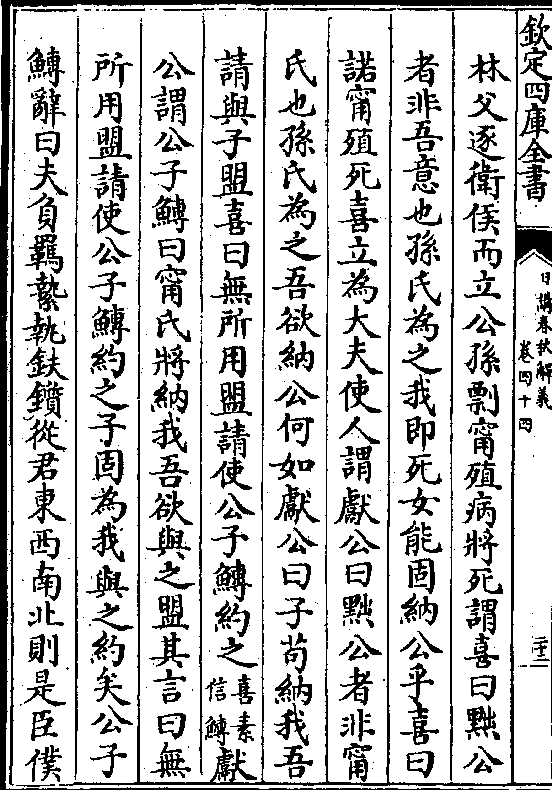 欽定四庫全書
日講春秋解義
卷四十四
二十二
林父逐衛侯而立公孫剽甯殖病將死謂喜曰黜公
者非吾意也孫氏為之我即死女能固納公乎喜曰
諾甯殖死喜立為大夫使人謂獻公曰黜公者非甯
氏也孫氏為之吾欲納公何如獻公曰子苟納我吾
請與子盟喜曰無所用盟請使公子鱄約之喜素信鱄獻
公謂公子鱄曰甯氏將納我吾欲與之盟其言曰無
所用盟請使公子鱄約之子固為我與之約矣公子
鱄辭曰夫負羈縶執鈇鑕從君東西南北則是臣僕